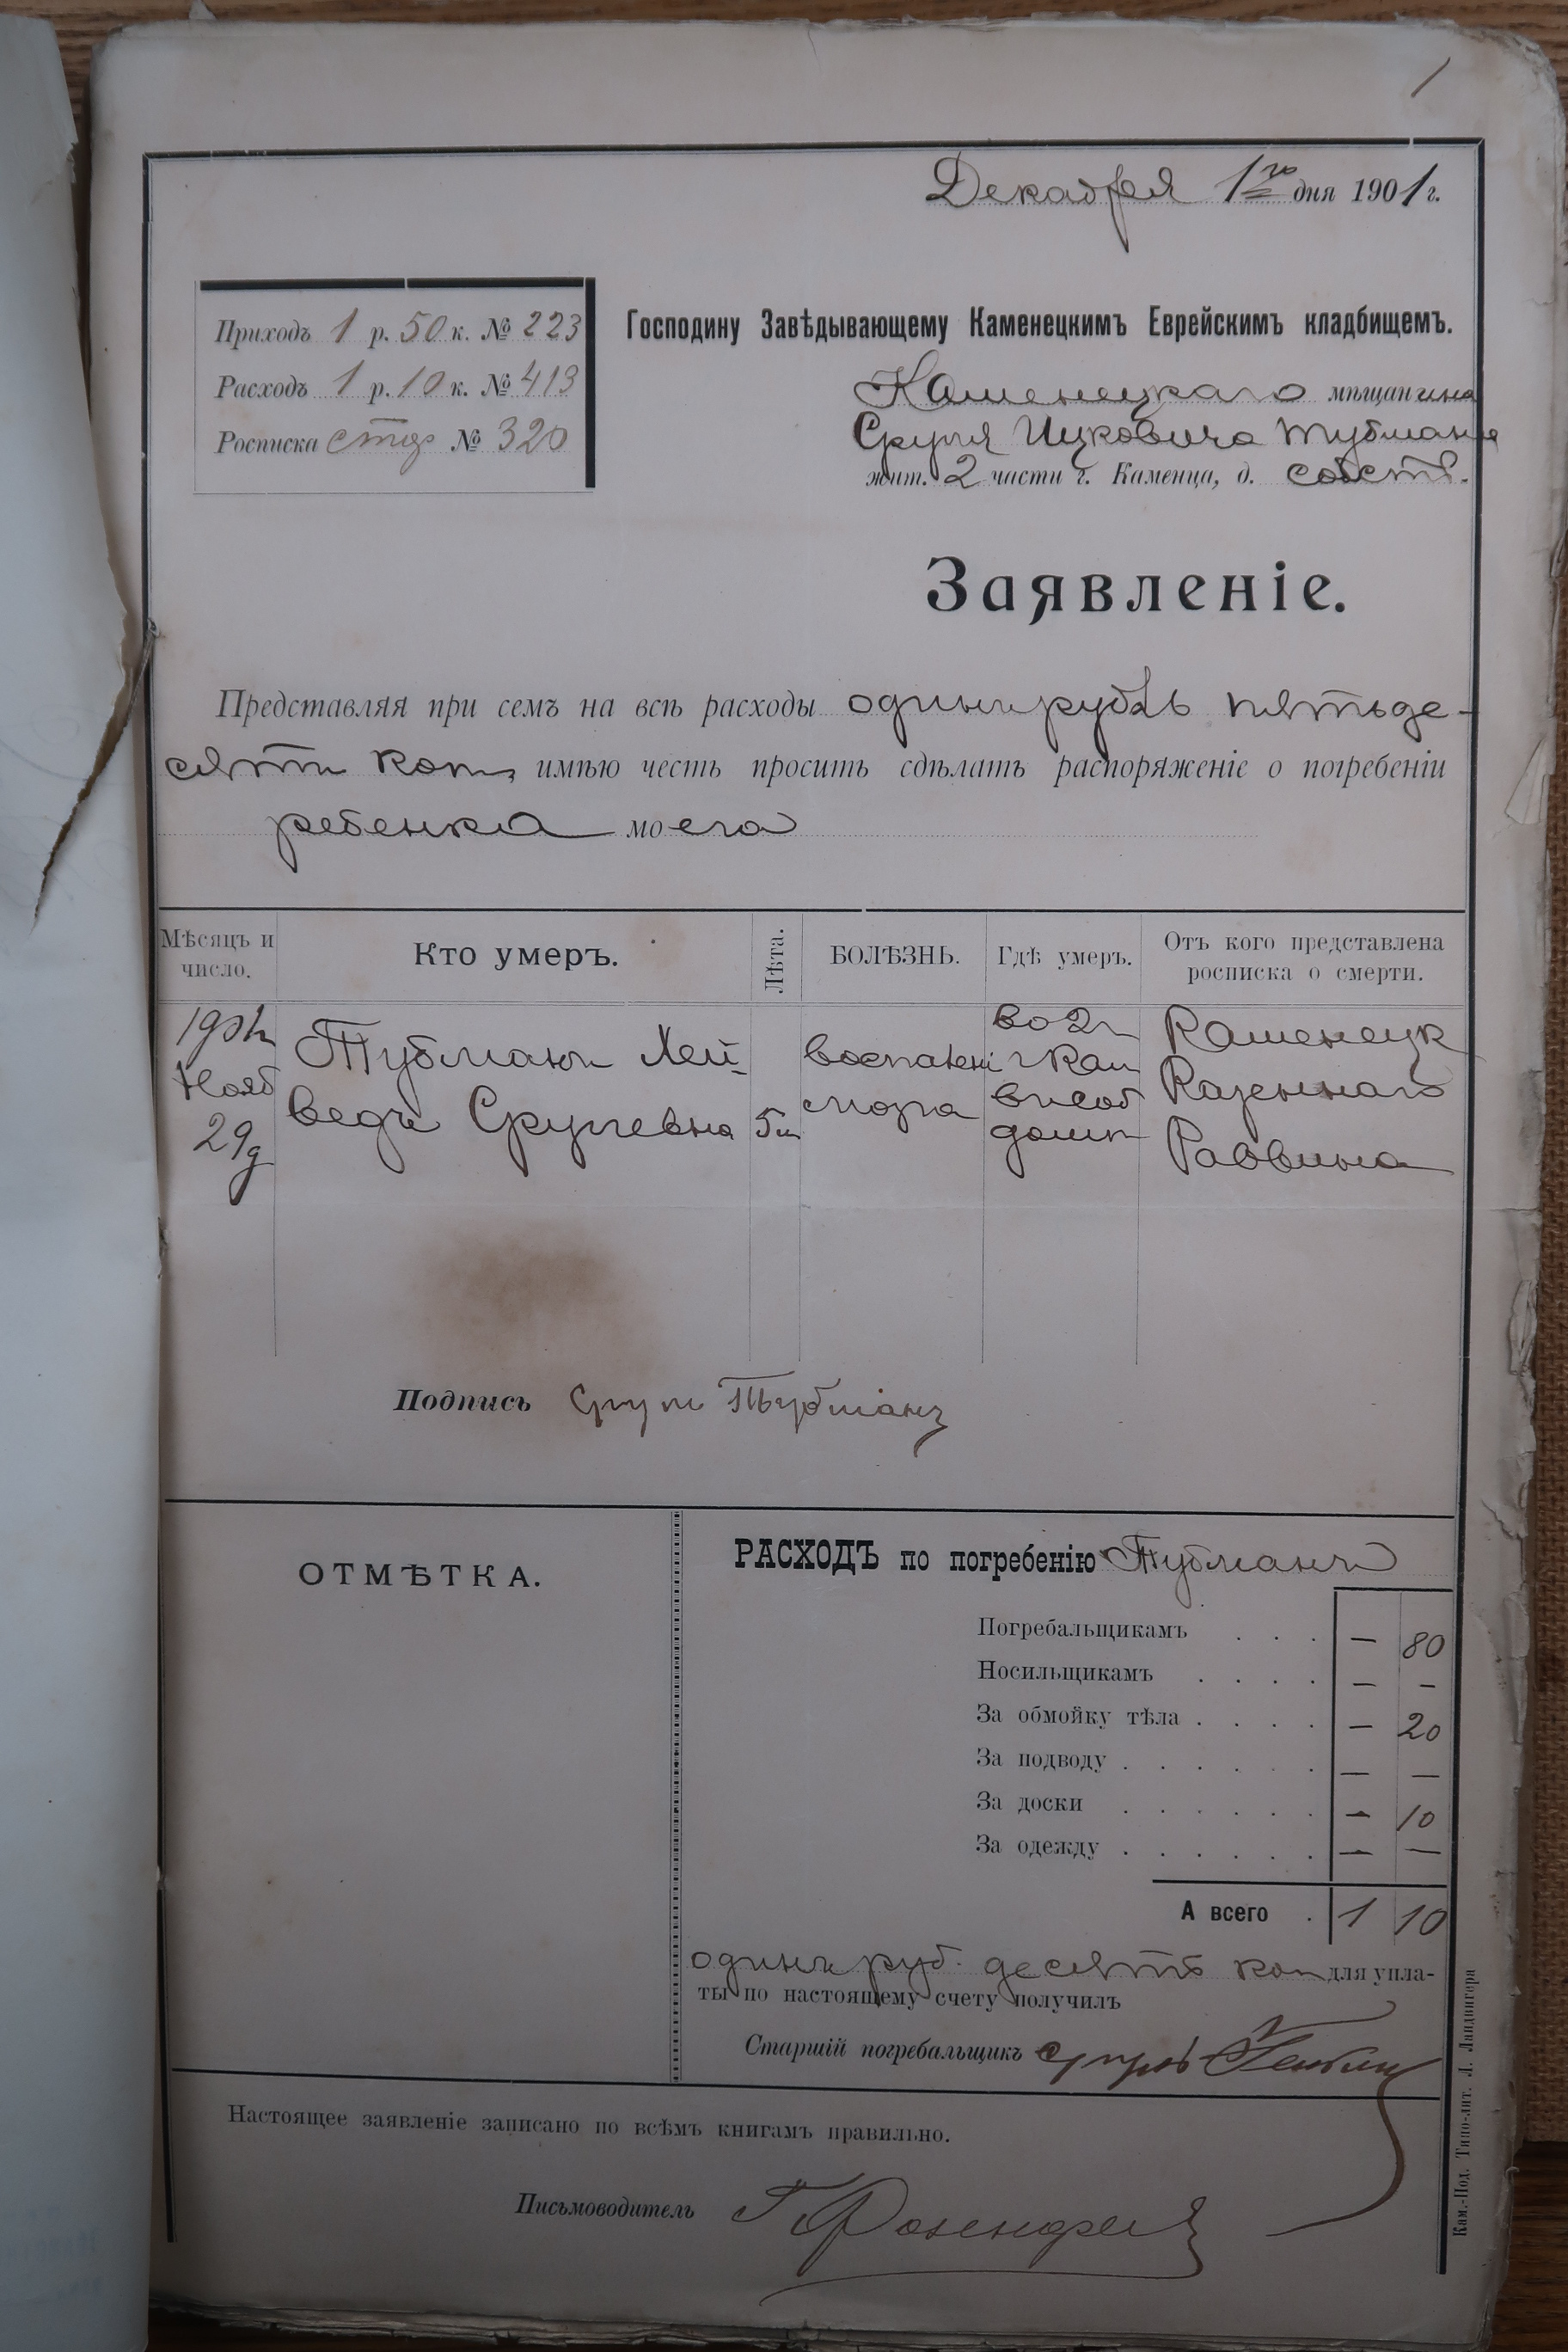 1
Декабря 1го дня 1901 г.
Приходъ 1 р. 50 к. № 223
Расходъ 1 р. 10 к. № 413
Росписка № 320
Господину Завѣдывающему Каменецкимъ Еврейскимъ кладбищемъ.
Каменецкаго мѣщанина
Сруля Ицковича Тубмана
жит. 2 части г. Каменца, д. собств.
Заявленіе.
Представляя при семъ на всѣ расходы одинъ рубль пятьде-
сятъ коп, имѣю честь просить сдѣлать распоряженіе о погребеніи
ребенка моего
Мѣсяцъ и число.
Кто умеръ.
Лѣта.
БОЛѢЗНЬ.
Гдѣ умеръ.
Отъ кого представлена росписка о смерти.
Нояб
29д
Тубманъ Хей-
ведъ Срулевна
5
воспалені
во 2
ч Кам
въ соб
домѣ
Каменецк
Казеннаго
Раввина
Подпись Сруль Тубманъ
ОТМѢТКА.
РАСХОДЪ по погребенію Тубманъ
Погребальщикамъ . . . — 80
Носильщикамъ . . . . — —
За обмойку тѣла . . . . — 20
За подводу . . . . . . — —
За доски . . . . . . — 10
За одежду . . . . . . — —
А всего . 1 10
одинъ руб. десять коп для упла-
ты по настоящему счету получилъ
Старшій погребальщикъ
Настоящее заявленіе записано по всѣмъ книгамъ правильно.
Письмоводитель Г Розенфел
Кам.-Под. Типо-лит. Л. Ландвигера